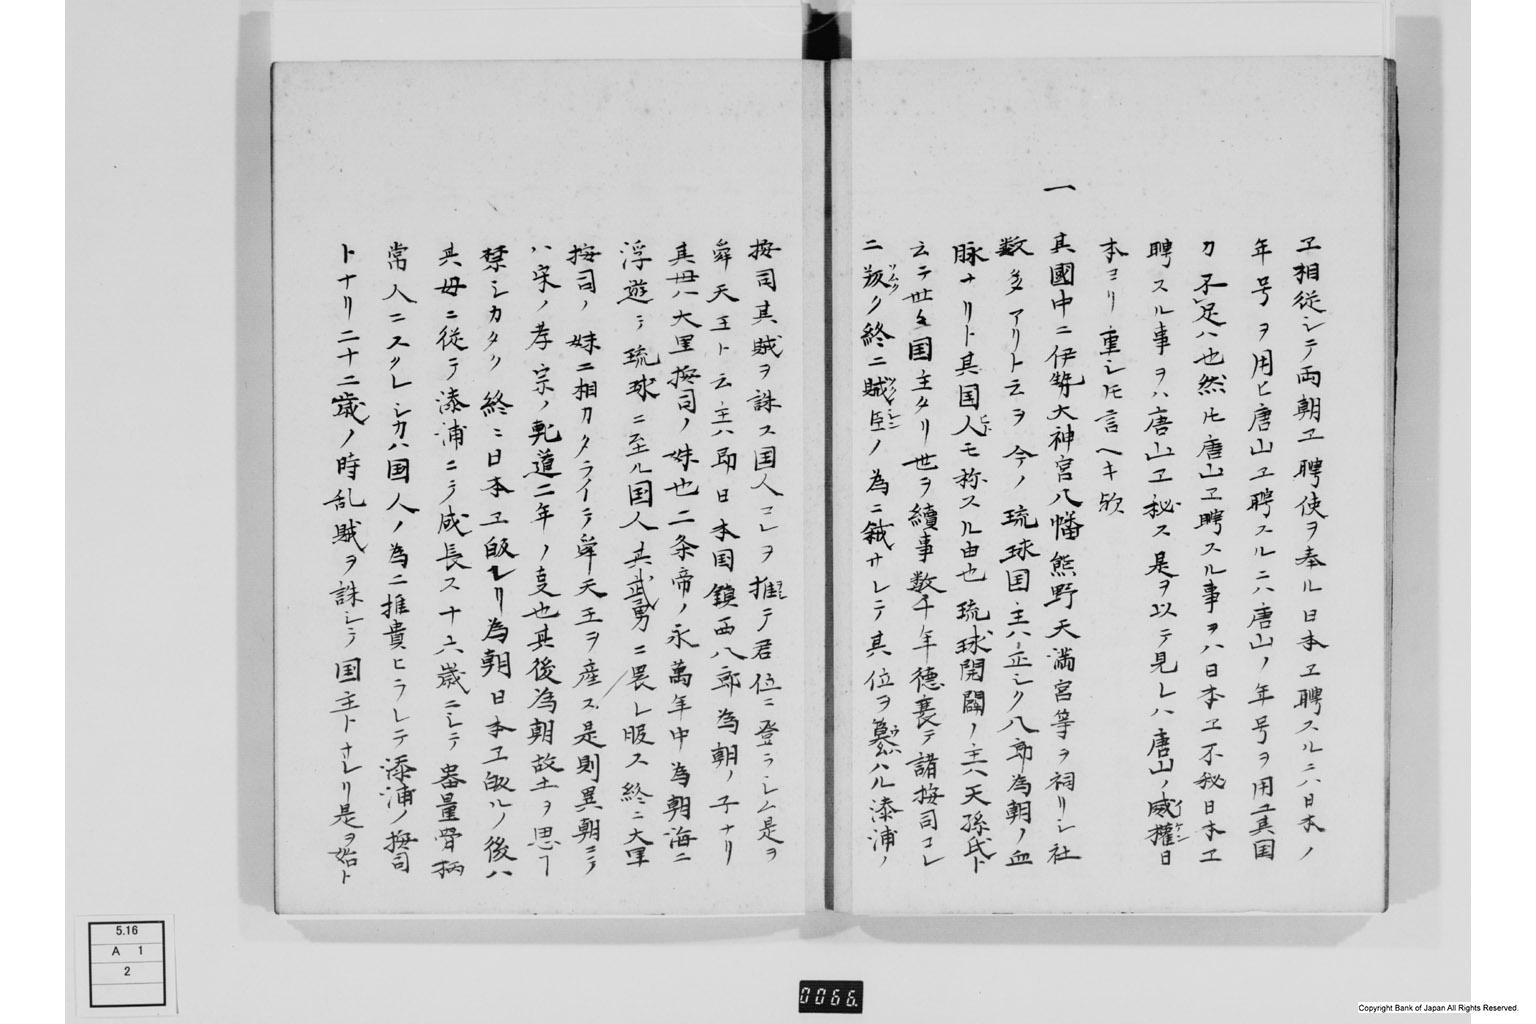 ヱ相従シテ両朝ヱ聘使ヲ奉ル日本ヱ聘スルニハ日本ノ
年号ヲ用ヒ唐山ヱ聘スルニハ唐山ノ年号ヲ用ユ其国
力不足ハ也然ㇾ𪜈唐山ヱ聘スル事ヲハ日本ヱ不秘日本ヱ
聘スル事ヲハ唐山ヱ秘ス是ヲ以テ見レハ唐山ノ威権日
本ヨリ重シ𪜈言ヘキ歟
一
其國中ニ伊勢大神宮八幡熊野天満宮等ヲ祠リシ社
数多アリト云ヲ今ノ琉球国主ハ正シク八郎為朝ノ血
脉ナリト其国人モ称スル由也琉球開闢ノ主ハ天孫氏ト
云テ世々国主タリ世ヲ續事数千年徳衰テ諸按司コレ
ニ叛ク終ニ賊臣ノ為ニ弑サレテ其位ヲ簒ハル添浦ノ
按司其賊ヲ誅ス国人コレヲ推テ君位ニ登ラシム是ヲ
舜天王ト云主ハ即日本国鎮西八郎為朝ノ子ナリ
其母ハ大里按司ノ妹也二条帝ノ永萬年中為朝海ニ
浮遊シテ琉球ニ至ル国人其武勇ニ畏レ服ス終ニ大里
按司ノ妹ニ相カタライテ舜天王ヲ産ス是則異朝ニテ
ハ宋ノ孝宗ノ乾道二年ノ支也其後為朝故土ヲ思フ
禁シカタク終ニ日本ヱ皈レリ為朝日本ヱ皈ルノ後ハ
其母ニ従テ添浦ニテ成長ス十六歳ニシテ器量骨柄
常人ニスクレシカハ国人ノ為ニ推貴ヒラレテ添浦ノ按司
トナリ二十二歳ノ時乱賊ヲ誅シテ国主トナレリ是ヲ始ト
5.16
A 1
2
0066.
Copyright Bank of Japan All Rights Reserved.